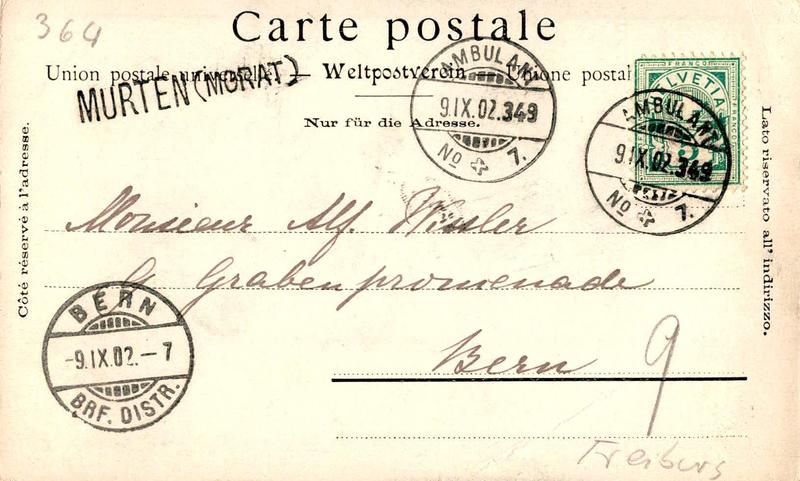 364
Carte postale
Union postale universelle. — Weltpostverein — Unione postal
MURTEN (MORAT)
Nur für die Adresse.
AMBULANT
9.IX.02.349
No 7.
HELVETIA
FRANCO
FRANCO
AMBULANT
9.IX.02.349
No 7.
Côté réservé à l'adresse.
Lato riservato all' indirizzo.
Monsieur Alf.
Grabenpromenade
Bern
9
BERN
-9.IX.02.-7
BRF. DISTR.
Freiburg